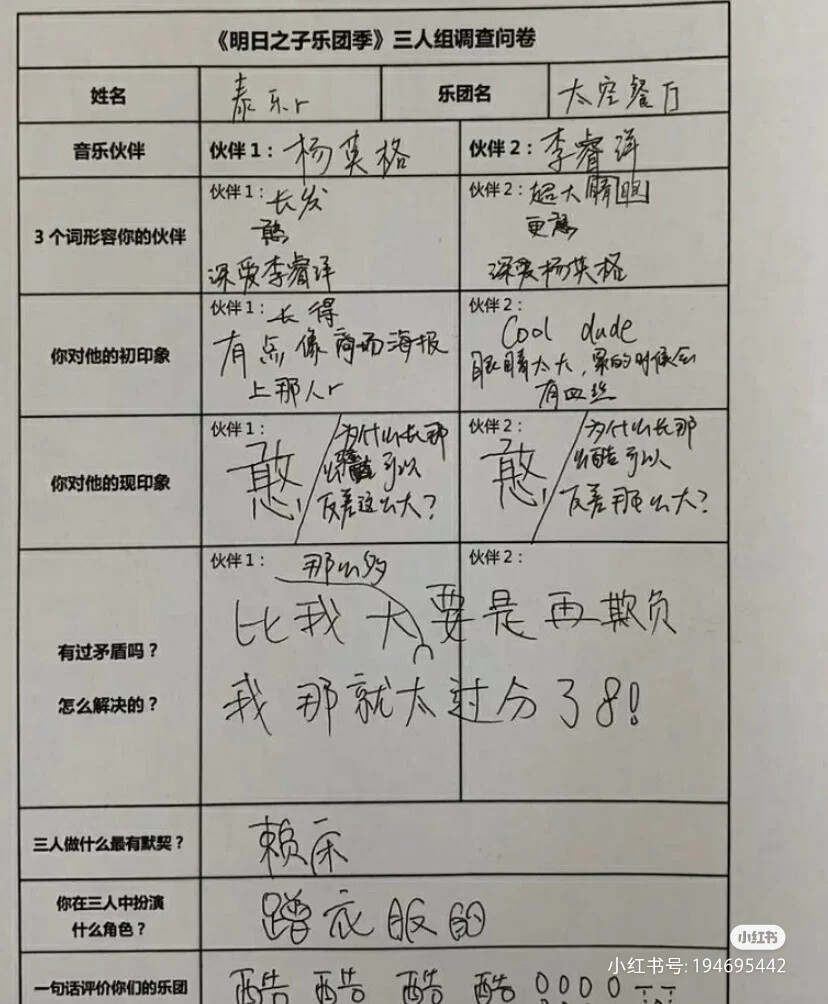 《明日之子乐团季》三人组调查问卷
姓名 泰乐r 乐团名 太空餐厅
音乐伙伴 伙伴1：杨英格 伙伴2：李睿洋
3个词形容你的伙伴
伙伴1：长发
憨
深爱李睿洋
伙伴2：超大眼睛
更憨
深爱杨英格
你对他的初印象
伙伴1：长得
有点像商场海报
上那人r
伙伴2：
Cool dude
眼睛太大，累的时候会
有血丝
你对他的现印象
伙伴1：
憨/为什么长那
么酷可以
反差这么大？
伙伴2：
憨/为什么长那
么酷可以
反差那么大？
有过矛盾吗？
怎么解决的？
伙伴1：
伙伴2：
比我大那么多要是再欺负
我那就太过分了8！
三人做什么最有默契？
赖床
你在三人中扮演
什么角色？
蹭衣服的
一句话评价你们的乐团
酷 酷 酷 酷
小红书
小红书号: 194695442